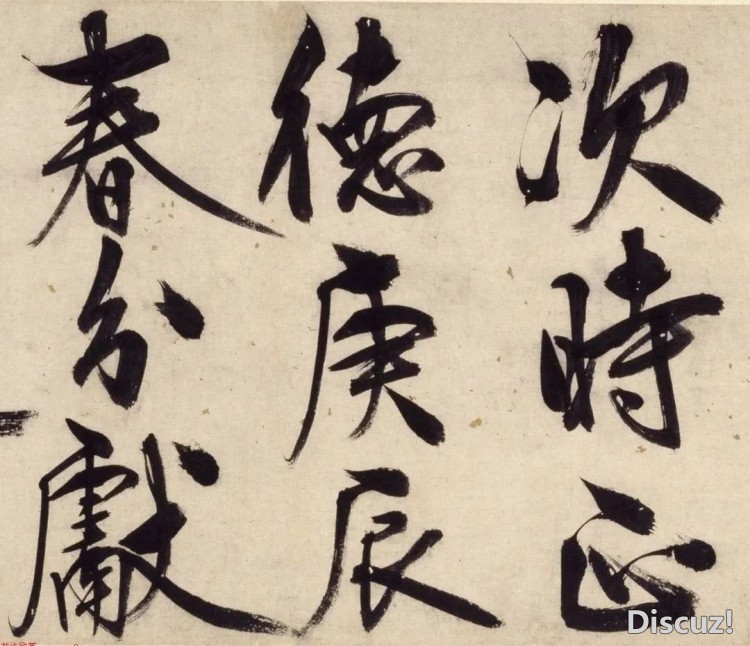 次時正
德庚辰
春分獻
Discuz!